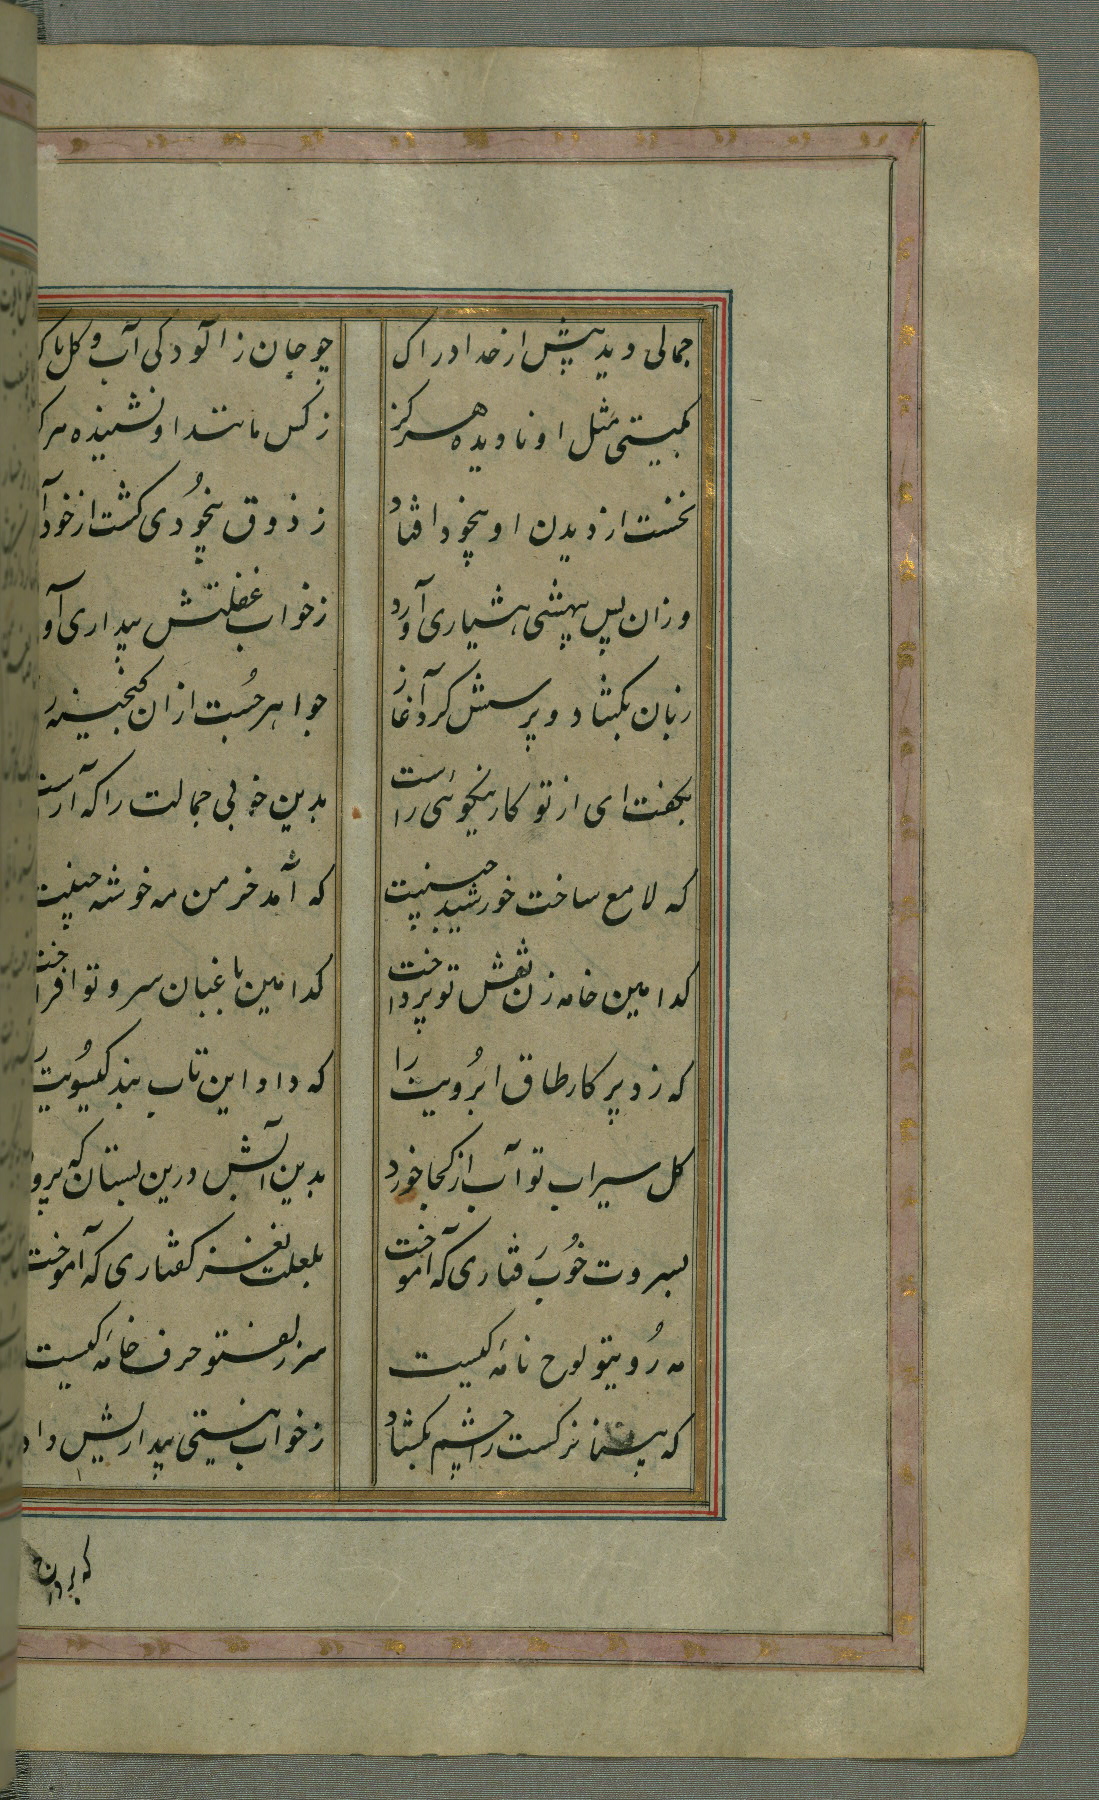 جمالی دید پیش از حد ادراک چو جان ز آلودگی آب و گل پاک
بگیتی مثل او نادیده هرگز ز کس مانند او نشنیده هرگز
نخست از دیدن او بیخود افتاد ز ذوق بیخودی گشت از خود آ
وزان پس بیهشی هشیاری آورد ز خواب غفلتش بیداری آو
زبان بگشاد و پرسش کرد آغاز جواهر جست ازان گنجینه ر
بگفت ای از تو کار نیکوئی راست بدین خوبی جمالت را که آراست
که لامع ساخت خورشید جبینت که آمد خرمن مه خوشه چینت
کدامین خامه زن نقش تو پرداخت کدامین باغبان سرو تو افراخت
که زد پرکار طاق ابرویت را که داد این تاب بند گیسویت ر
گل سیراب تو آب از کجا خورد بدین آبش درین بستان که پرو
بسروت خوب رفتاری که آموخت بلعلت نغز گفتاری که آموخت
مه رویتو لوح نامه کیست سر زلفتو حرف خامه کیست
که بینا نرگست را چشم بگشاد ز خواب نیستی بیداریش داد